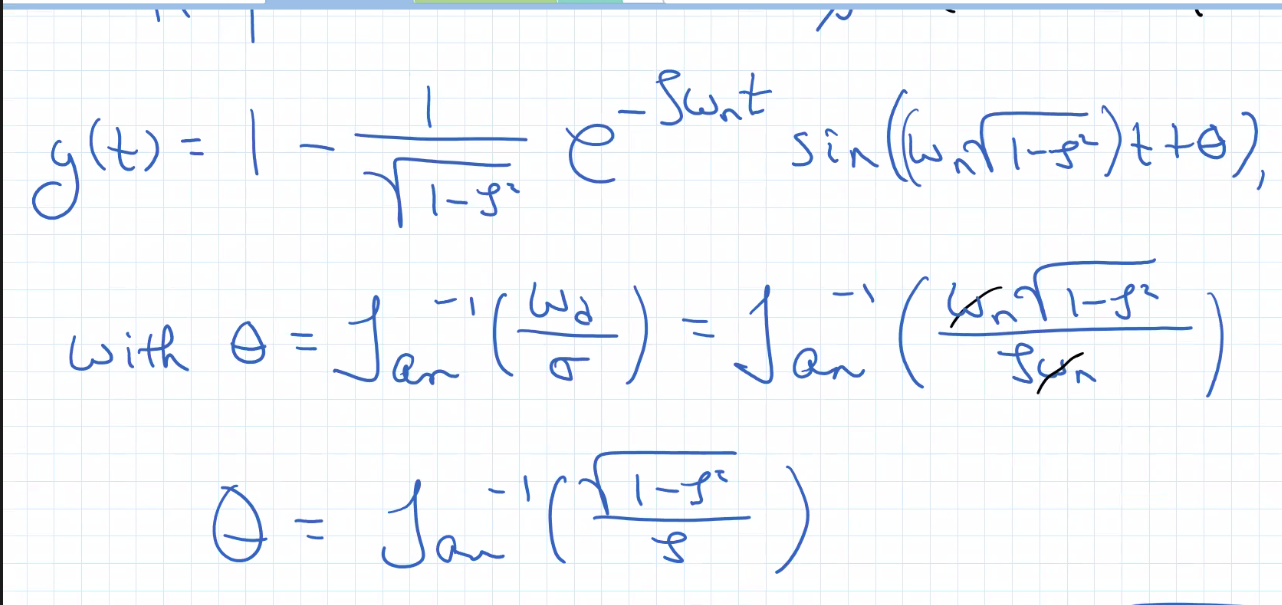 y(t) = 1 - 1/√(1-ζ²) e^(-ζωₙt) sin((ωₙ√(1-ζ²))t+θ),
with θ = Tan⁻¹(ω_d/σ) = Tan⁻¹(ωₙ√(1-ζ²)/ζωₙ)
θ = Tan⁻¹(√(1-ζ²)/ζ)